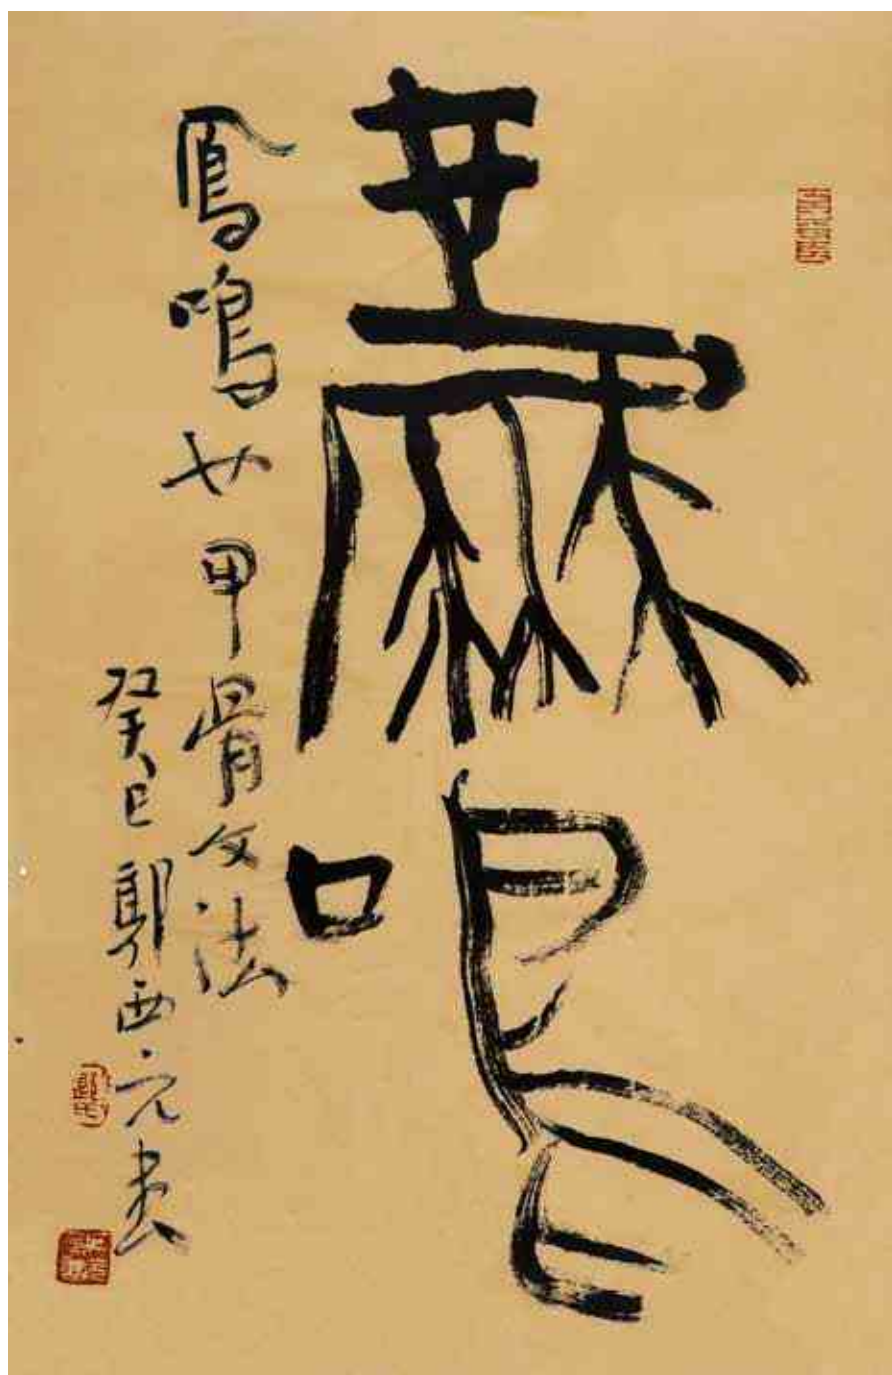 鳳鳴
鳳鳴 甲骨文法
癸巳郭西元書